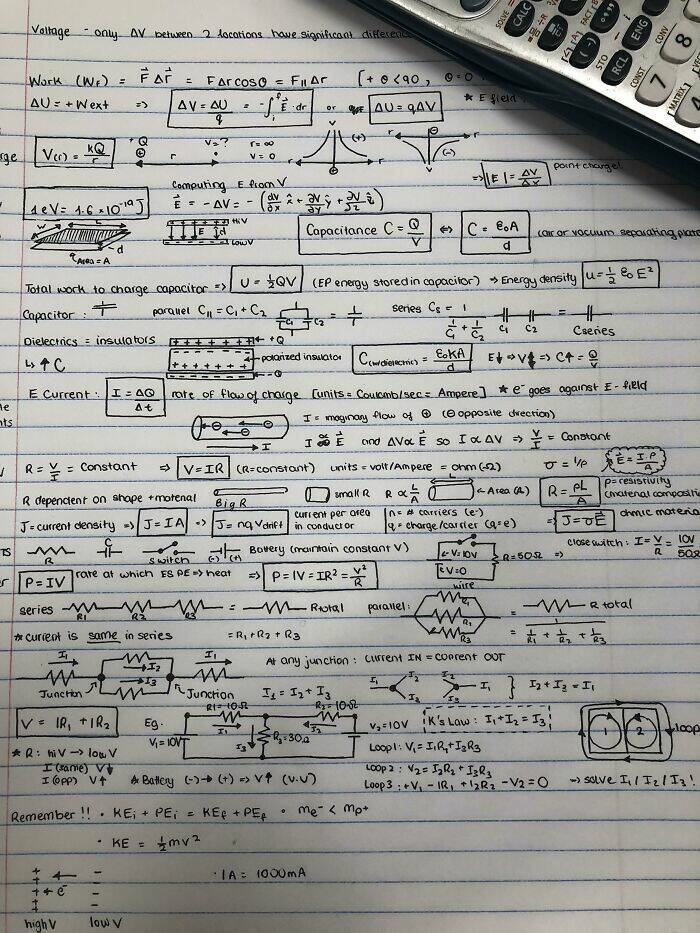 Voltage - only ΔV between 2 locations have significant differenc
Work (WF) = F⃗ Δr⃗ = FΔrcosθ = F∥Δr [+ θ<90, θ=0
ΔU = +Wext => ΔV = ΔU/q = -∫ᵢᶠ E⃗·dr or ΔU = qΔV * E field
V(r) = kQ/r +Q ⊕ r V=? r=∞ V=0 r V (+) r ⊕ r ⊖ r V (-)
=> |E| = ΔV/Δx point charge!
Computing E from V
1eV = 1.6×10⁻¹⁹J E⃗ = -ΔV = -(dV/dx x̂ + ∂V/∂y ŷ + ∂V/∂z ẑ)
w L d Area = A HiV E d LowV Capacitance C = Q/V <=> C = ε₀A/d (air or vacuum separating plate
Total work to charge capacitor => U = ½QV (EP energy stored in capacitor) => Energy density u = ½ε₀E²
Capacitor : parallel C∥ = C₁ + C₂ C₁ C₂ = series Cs = 1/(1/C₁ + 1/C₂) C₁ C₂ = Cseries
Dielectrics = insulators + + + + + + +Q
↳ ↑ C polarized insulator -Q C(w/dielectric) = ε₀KA/d E↓ => V↓ => C↑ = Q/V
E Current : I = ΔQ/Δt rate of flow of charge [units = Coulomb/sec = Ampere] * e⁻ goes against E-field
I = imaginary flow of ⊕ (⊖ opposite direction)
I I ∝ E⃗ and ΔV∝E⃗ so I∝ΔV => V/I = Constant
R = V/I = Constant => V=IR (R=constant) units = volt/Ampere = ohm (Ω) σ = 1/ρ E⃗ = I·ρ/A
R dependent on shape + material Big R small R R ∝ L/A L Area (A) R = ρL/A ρ=resistivity (material composition
J = current density => J = IA => J = nqVdrift current per area in conductor n = # carriers (e⁻) q = charge/carrier (q=e) => J=σE⃗ ohmic material
R C switch (-) (+) Battery (maintain constant V) V=10V V=0 R=50Ω wire => close switch : I = V/R = 10V/50Ω
P = IV rate at which ES PE => heat => P = IV = IR² = V²/R
series R1 R2 R3 = Rtotal parallel: R1 R2 R3 = R total
* current is same in series = R1+R2+R3 = 1/(1/R1 + 1/R2 + 1/R3)
I₁ I₂ I₃ I₁ At any junction : current IN = current OUT
Junction Junction I₁ = I₂ + I₃ I₁ I₂ I₃ I₂ I₃ I₁ } I₂ + I₃ = I₁
V = IR1 + IR2 Eg. V₁=10V R1=10Ω I₁ R₃=30Ω I₃ R₂=10Ω I₂ V₂=10V K's Law : I₁+I₂=I₃ 1 2 loop
* R: hi V → low V Loop1: V₁=I₁R₁+I₃R₃
I (same) V↓ Loop2 : V₂=I₂R₂+I₃R₃
I (opp) V↑ * Battery (-)→(+) => V↑ (v.v) Loop3 : +V₁ - IR₁ + I₂R₂ - V₂ = 0 => solve I₁/I₂/I₃!
Remember!! · KEi + PEi = KEf + PEf · me⁻ < mp⁺
· KE = ½mv²
· 1A = 1000mA
+ e⁻ -
high V low V
SOLVE =
CALC
RCL
ENG
STO
CONV
CONST
MATRIX
7
8
4
5